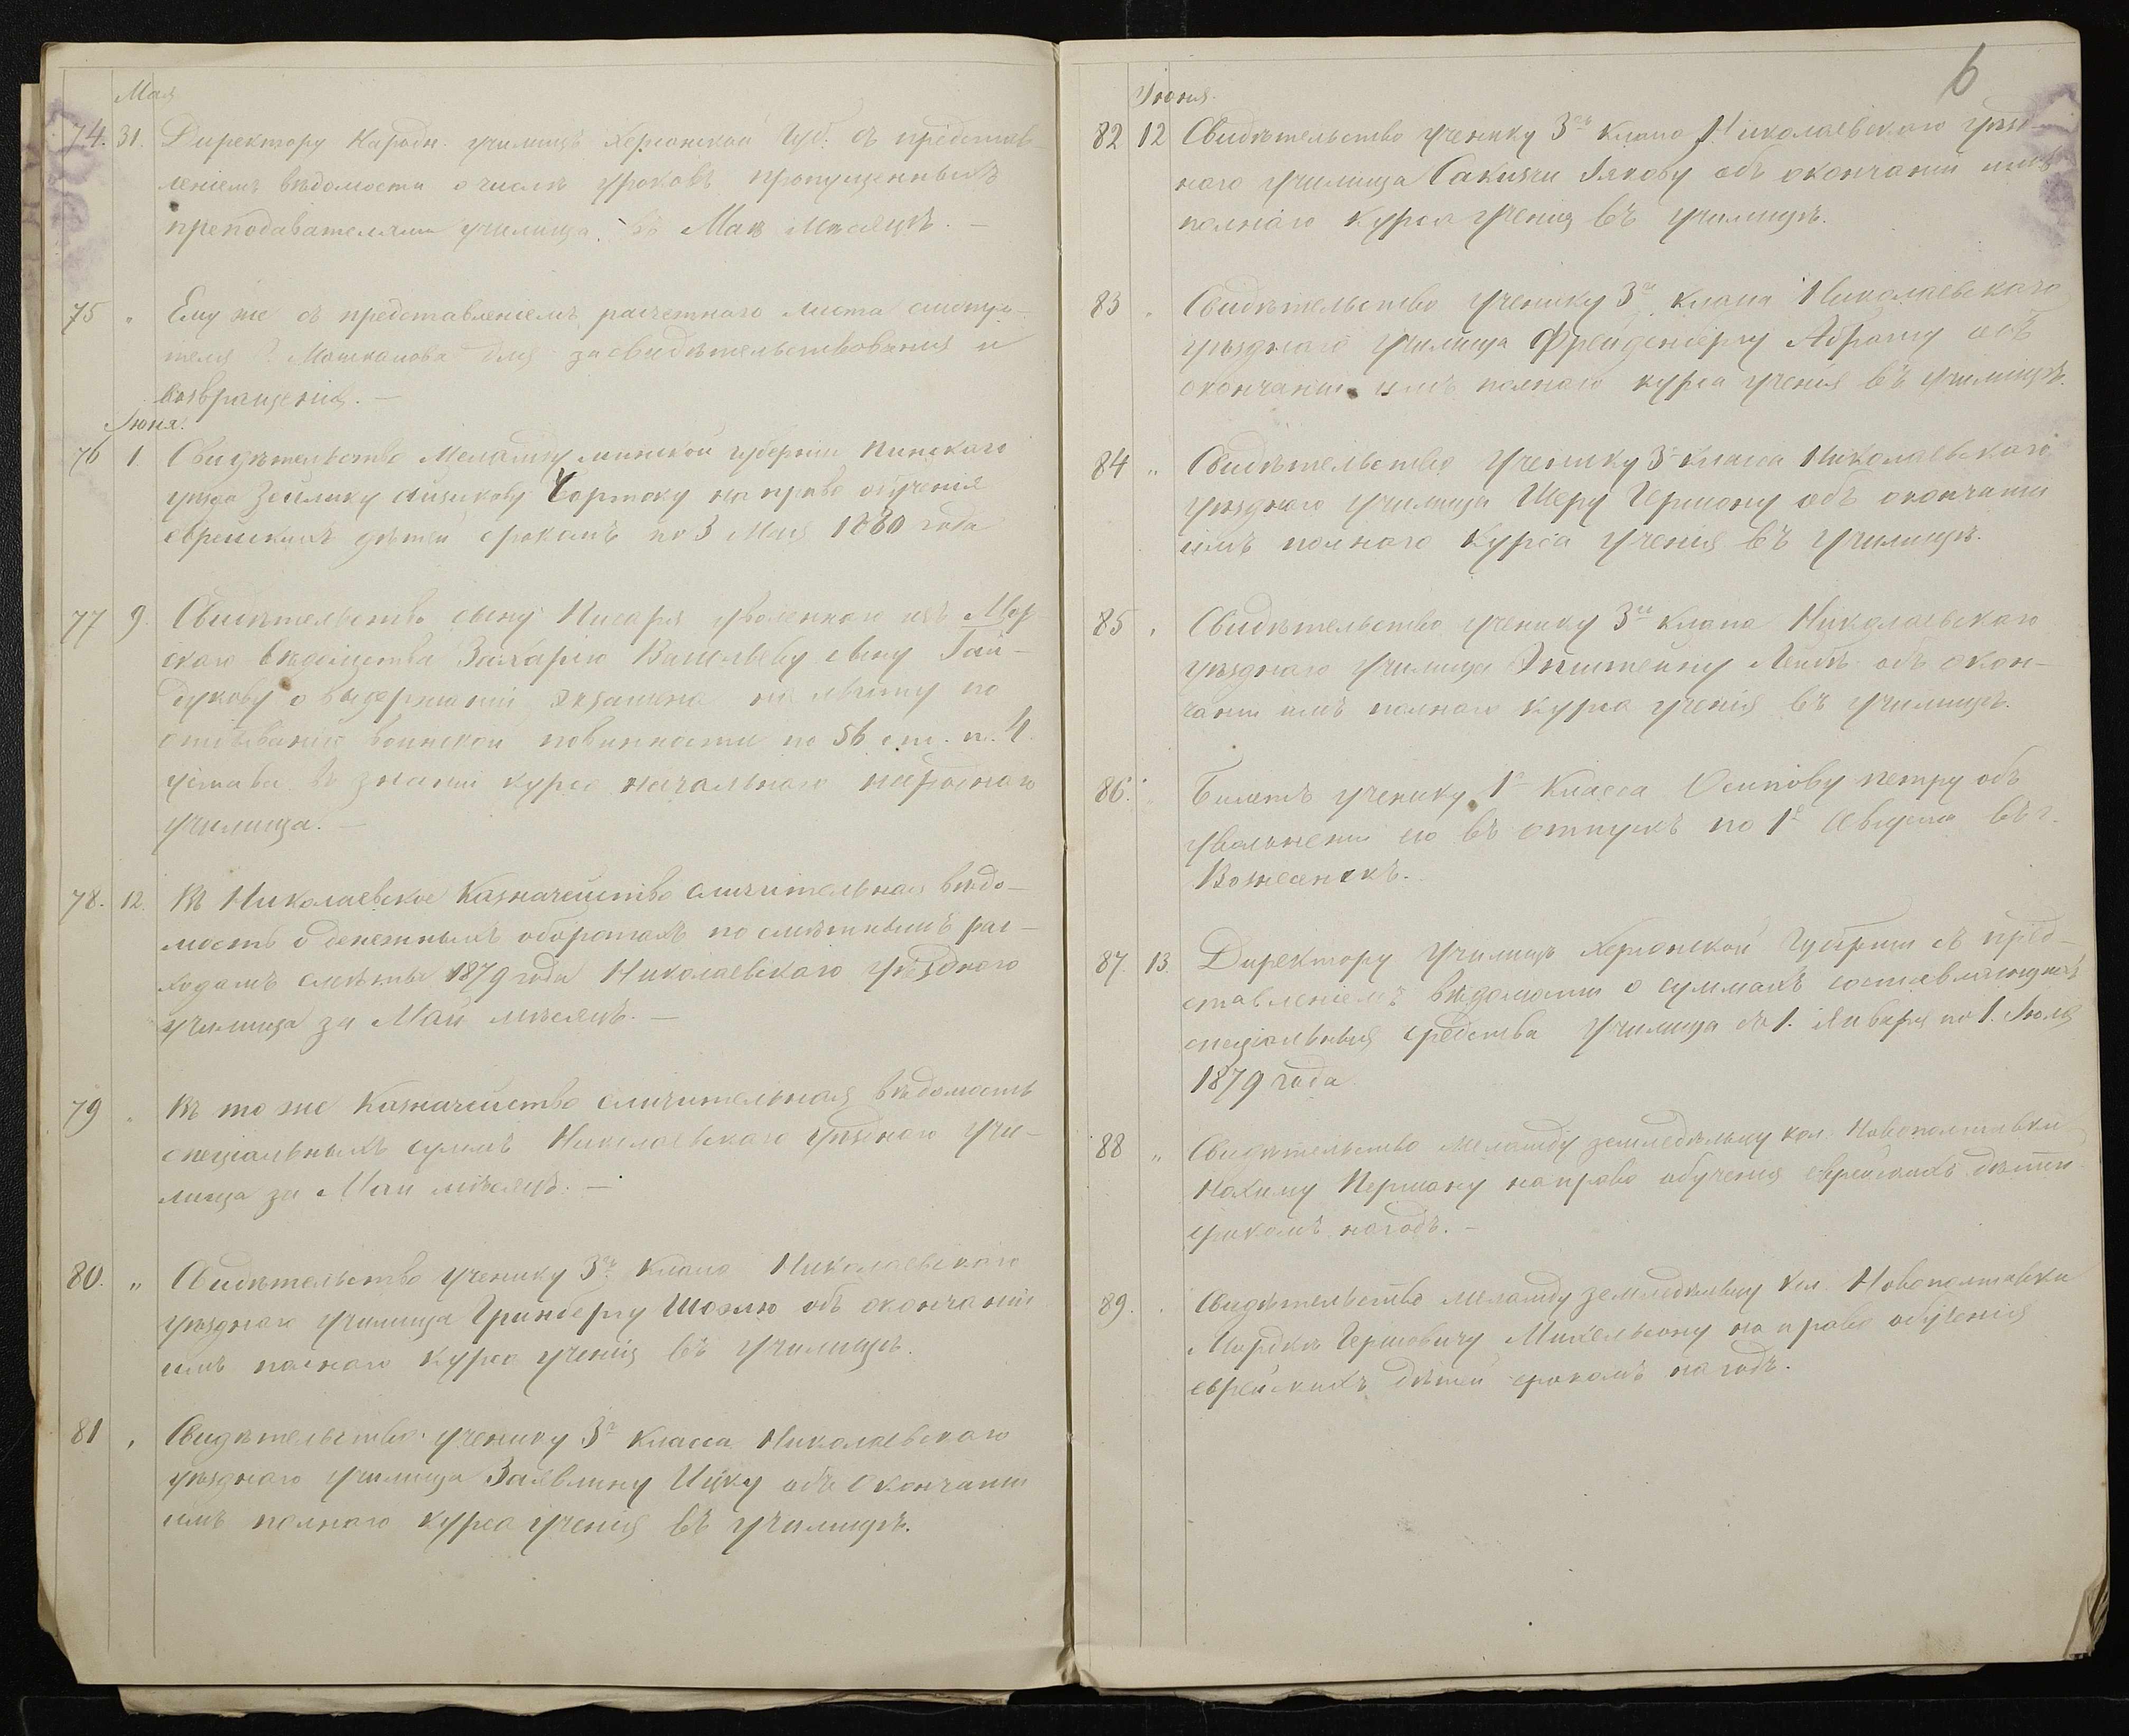 Мая
74. 31. Директору Народн. училищъ Херсонской Губ. съ представ-
леніемъ вѣдомости о числѣ уроковъ пропущенныхъ
преподавателями училища въ Маѣ мѣсяцѣ. —
75 " Ему же съ представленіемъ расчетнаго листа смотри-
теля Г. для засвидѣтельствованія и
возвращенія. —
Іюня.
76 1. Свидѣтельство Меламду минской губерніи Пинскаго
уѣзда Зейлику Айзикову Чортоку на право обученія
еврейскихъ дѣтей срокомъ по 3 Мая 1880 года
77 9. Свидѣтельство сыну Писаря уволеннаго изъ Мор
скаго вѣдомства Захарію Васильеву сыну Гай-
дукову о выдержаніи экзамена на льготу по
отбыванію воинской повинности по 56 ст. п. 4.
устава въ знаніи курса начальнаго народнаго
училища. —
78. 12. Въ Николаевское Казначейство сличительная вѣдо-
мость о денежныхъ оборотахъ по смѣтнымъ рас-
ходамъ смѣты 1879 года Николаевскаго уѣзднаго
училища за Май мѣсяцъ. —
79 " Въ то же Казначейство сличительная вѣдомость
спеціальныхъ суммъ Николаевскаго уѣзднаго учи-
лища за Май мѣсяцъ. —
80. " Свидѣтельство ученику 3го класса Николаевскаго
уѣзднаго училища Гринбергу Шоэлю объ окончаніи
имъ полнаго курса ученія въ училищѣ.
81 " Свидѣтельство ученику 3го класса Николаевскаго
уѣзднаго училища Заявлину Ицку объ окончаніи
имъ полнаго курса ученія въ училищѣ.
6
Іюня.
82 12 Свидѣтельство ученику 3го класса Николаевскаго уѣзд-
наго училища Сакизчи Іакову объ окончаніи имъ
полнаго курса ученія въ училищѣ.
83 " Свидѣтельство ученику 3го класса Николаевскаго
уѣзднаго училища Фрейденбергу Абраму объ
окончаніи имъ полнаго курса ученія въ училищѣ.
84 " Свидѣтельство ученику 3го класса Николаевскаго
уѣзднаго училища Шеру Гершону объ окончаніи
имъ полнаго курса ученія въ училищѣ.
85 " Свидѣтельство ученику 3го класса Николаевскаго
уѣзднаго училища Эпштейну Лейбѣ объ окон-
чаніи имъ полнаго курса ученія въ училищѣ.
86. " Билетъ ученику 1го класса Осипову Петру объ
увольненіи его въ отпускъ по 1е Августа въ г.
Вознесенскъ.
87. 13. Директору Училищъ Херсонской Губерніи съ пред-
ставленіемъ вѣдомости о суммахъ составляющихъ
спеціальныя средства училища съ 1. Января по 1. Іюля
1879 года.
88 " Свидѣтельство меламду земледѣльцу кол. Новополтавки
Нахиму Перману на право обученія еврейскихъ дѣтей
срокомъ на годъ. —
89. " Свидѣтельство меламду земледѣльцу кол. Новополтавки
Мордкѣ Гершовичу Михельсону на право обученія
еврейскихъ дѣтей срокомъ на годъ.